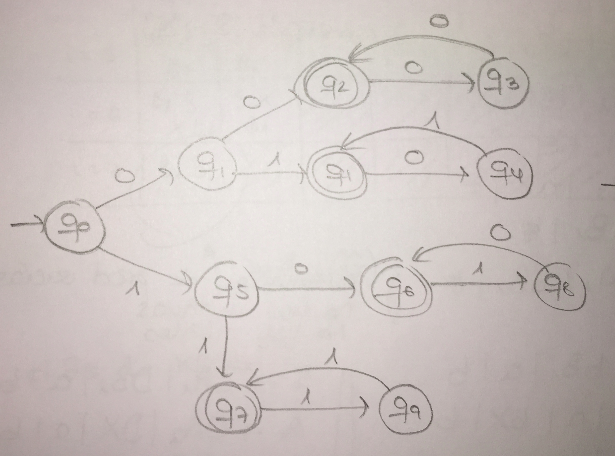 0
q2
0
q3
0
1
q1
1
q1
0
q4
0
q0
1
0
q5
0
q6
1
q8
1
1
q7
1
q9